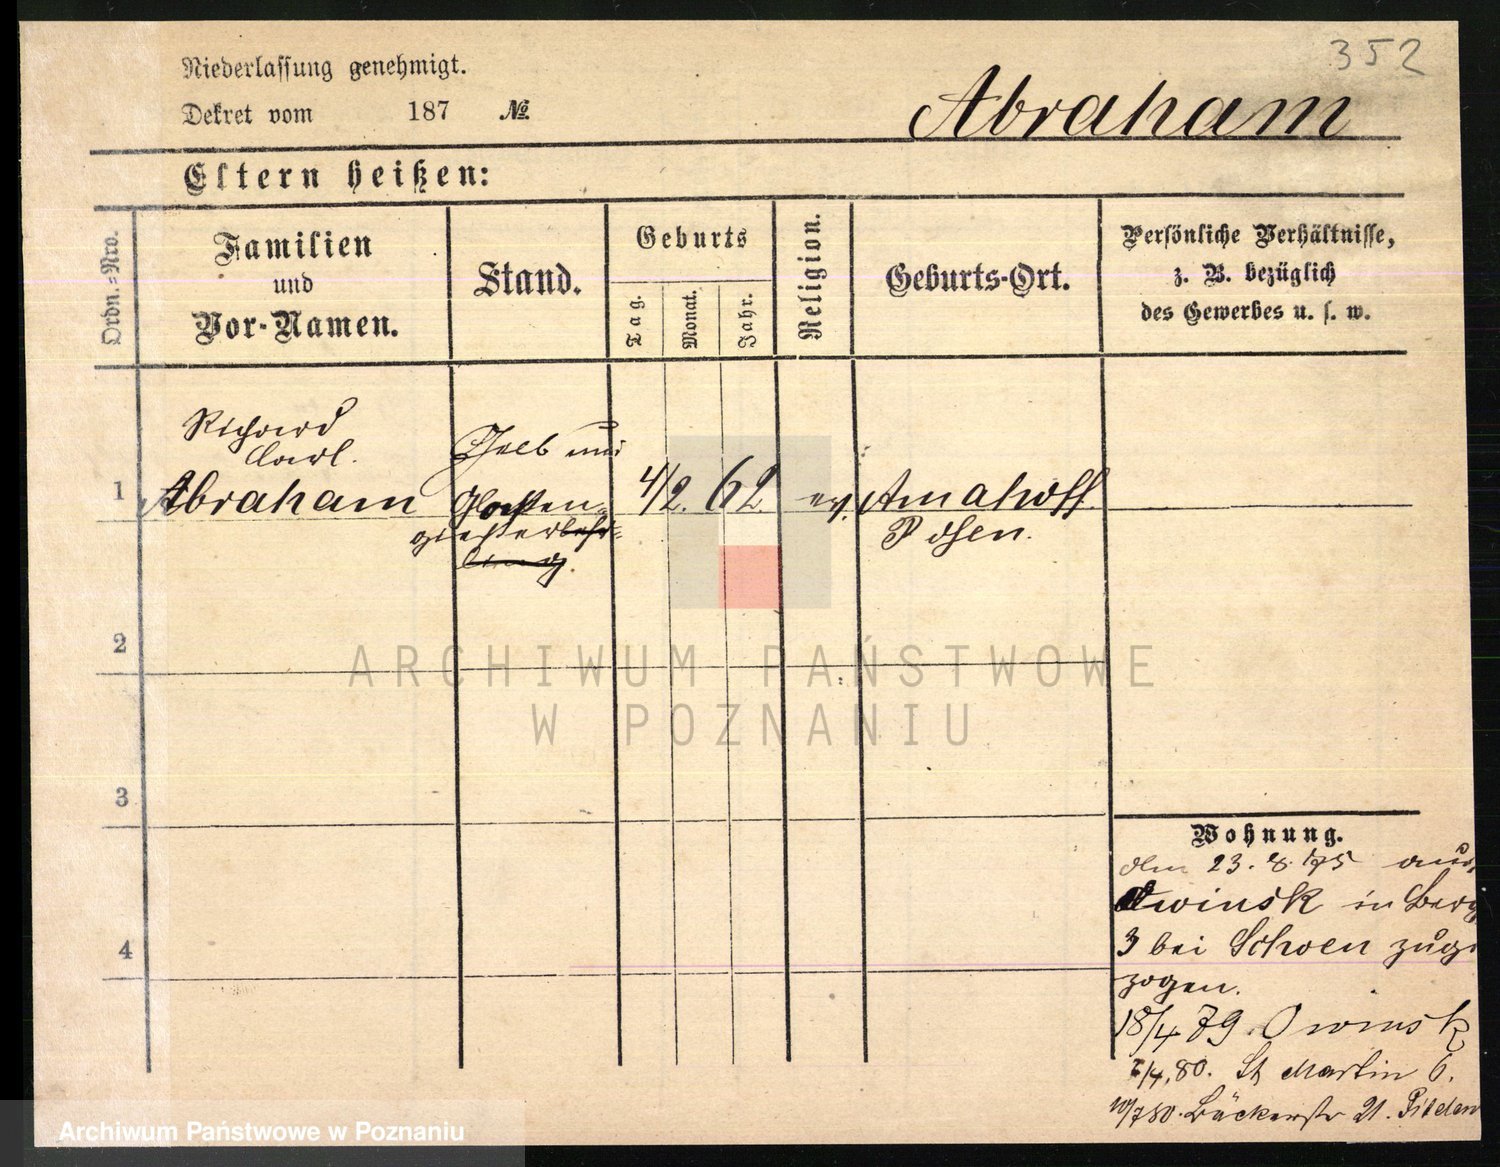 352
Niederlassung genehmigt.
Dekret vom 187 №
Abraham
Eltern heißen:
Ordn.=Nro.
Familien
und
Vor-Namen.
Stand.
Geburts
Tag.
Monat.
Jahr.
Religion.
Geburts-Ort.
Persönliche Verhältnisse,
z. B. bezüglich
des Gewerbes u. s. w.
Richard
Carl.
1 Abraham
Gelb und
Glocken=
gießerlehr=
ling.
4/2. 62.
ev.
Posen.
2
3
4
Wohnung.
den 23. 8. 75 aus
Owinsk in Berg
3 bei Schoen zuge
zogen.
18/4 79 Owinsk
/4. 80. St Martin 6.
10/7 80. Bäckerstr 21.
ARCHIWUM PAŃSTWOWE
W POZNANIU
Archiwum Państwowe w Poznaniu